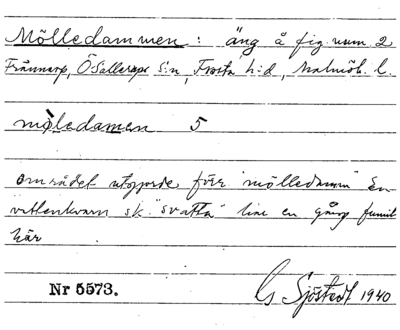 Mölledammen: äng å fig. num 2
Frännarp, Ö Sallerups s:n, Frosta h:d, Malmöh. l.
mòledamen 5
området utgjorde förr "mölledamm" En
vattenkvarn sk. "svatta" har en gång funnits
här
Nr 5573.
G Sjöstedt 1940